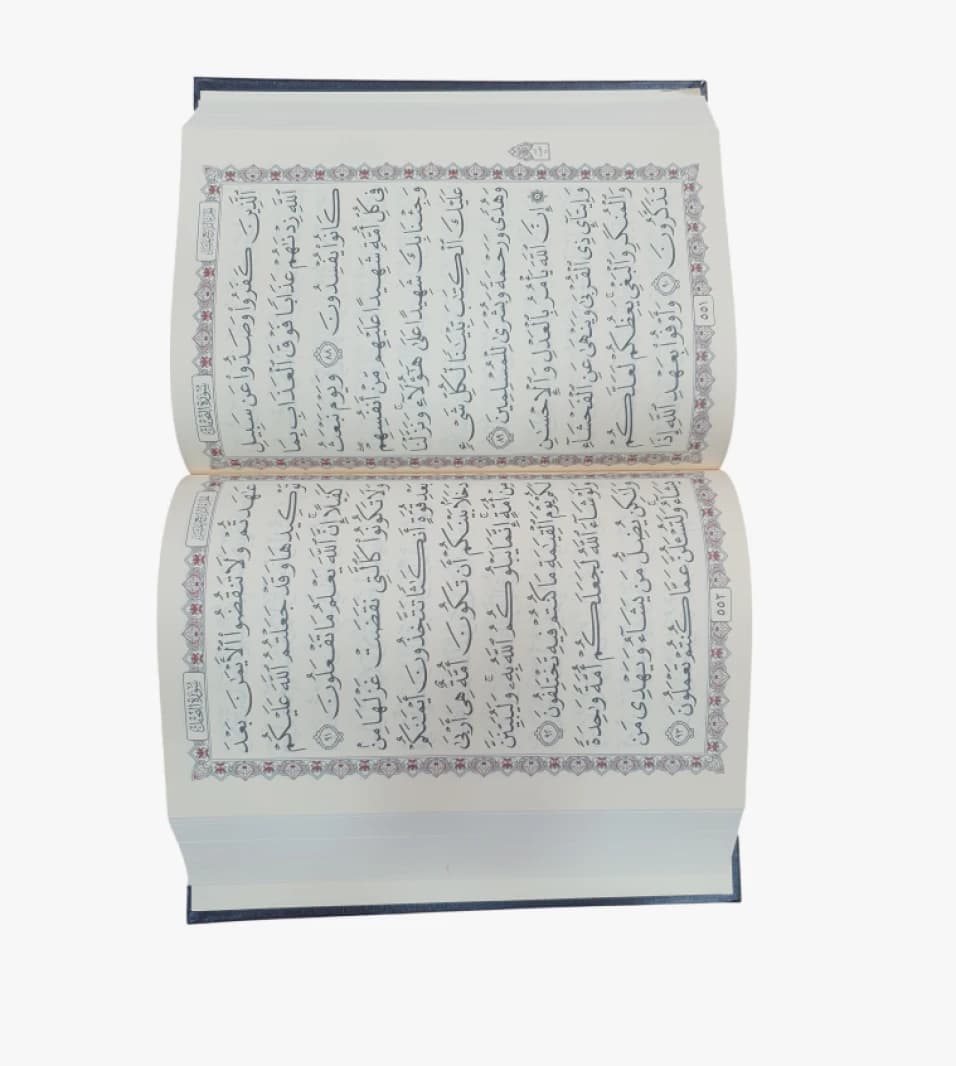 سُورَةُ النَّحْلِ
الجُزْءُ الرَّابِعَ عَشَرَ
ٱلَّذِينَ كَفَرُواْ وَصَدُّواْ عَن سَبِيلِ
ٱللَّهِ زِدْنَٰهُمْ عَذَابًا فَوْقَ ٱلْعَذَابِ بِمَا
كَانُواْ يُفْسِدُونَ ٨٨ وَيَوْمَ نَبْعَثُ
فِى كُلِّ أُمَّةٍ شَهِيدًا عَلَيْهِم مِّنْ أَنفُسِهِمْۖ
وَجِئْنَا بِكَ شَهِيدًا عَلَىٰ هَٰٓؤُلَآءِۚ وَنَزَّلْنَا
عَلَيْكَ ٱلْكِتَٰبَ تِبْيَٰنًا لِّكُلِّ شَىْءٍ
وَهُدًى وَرَحْمَةً وَبُشْرَىٰ لِلْمُسْلِمِينَ ٨٩
۞ إِنَّ ٱللَّهَ يَأْمُرُ بِٱلْعَدْلِ وَٱلْإِحْسَٰنِ
وَإِيتَآئِ ذِى ٱلْقُرْبَىٰ وَيَنْهَىٰ عَنِ ٱلْفَحْشَآءِ
وَٱلْمُنكَرِ وَٱلْبَغْىِۚ يَعِظُكُمْ لَعَلَّكُمْ
تَذَكَّرُونَ ٩٠ وَأَوْفُواْ بِعَهْدِ ٱللَّهِ إِذَا
٥٥١
سُورَةُ النَّحْلِ
الجُزْءُ الرَّابِعَ عَشَرَ
عَٰهَدتُّمْ وَلَا تَنقُضُواْ ٱلْأَيْمَٰنَ بَعْدَ
تَوْكِيدِهَا وَقَدْ جَعَلْتُمُ ٱللَّهَ عَلَيْكُمْ
كَفِيلًاۚ إِنَّ ٱللَّهَ يَعْلَمُ مَا تَفْعَلُونَ ٩١
وَلَا تَكُونُواْ كَٱلَّتِى نَقَضَتْ غَزْلَهَا مِنۢ
بَعْدِ قُوَّةٍ أَنكَٰثًا تَتَّخِذُونَ أَيْمَٰنَكُمْ
دَخَلًۢا بَيْنَكُمْ أَن تَكُونَ أُمَّةٌ هِىَ أَرْبَىٰ
مِنْ أُمَّةٍۚ إِنَّمَا يَبْلُوكُمُ ٱللَّهُ بِهِۦۚ وَلَيُبَيِّنَنَّ
لَكُمْ يَوْمَ ٱلْقِيَٰمَةِ مَا كُنتُمْ فِيهِ تَخْتَلِفُونَ ٩٢
وَلَوْ شَآءَ ٱللَّهُ لَجَعَلَكُمْ أُمَّةً وَٰحِدَةً
وَلَٰكِن يُضِلُّ مَن يَشَآءُ وَيَهْدِى مَن
يَشَآءُۚ وَلَتُسْـَٔلُنَّ عَمَّا كُنتُمْ تَعْمَلُونَ ٩٣
٥٥٢